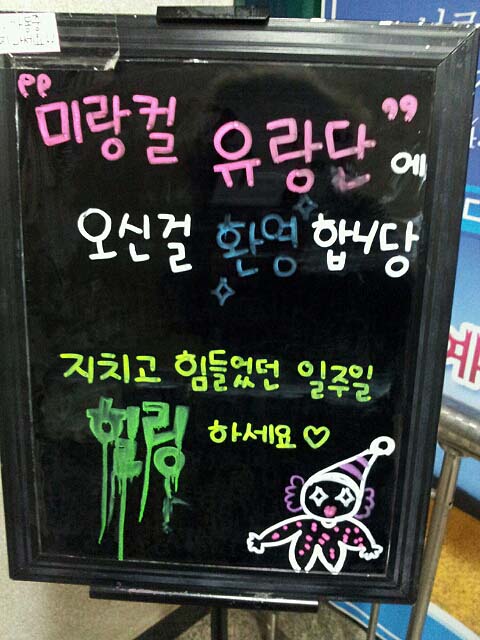 "미랑컬 유랑단"에
오신걸 환영합니당
지치고 힘들었던 일주일
힐링 하세요♡